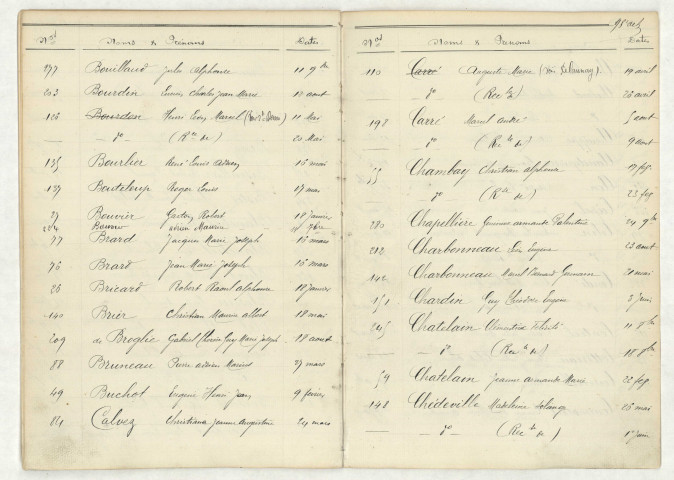 Nos Noms & Prénoms Dates
177 Bouillaud Jules Alphonse 11 9bre
203 Bourdin Charles Jean Marie 12 aout
126 Bourdon Henri Marcel 11 Mai
— do (Rec de) 20 Mai
135 Bourlier René Louis 15 mai
137 Bouteloup Roger Louis 17 mai
27 Bouvier Gaston Robert 18 janvier
224 Bouvier Maurice
77 Brard Jacques Marie Joseph 15 mars
76 Brard Jean Marie Joseph 15 mars
26 Bricard Robert Raoul Alphonse 18 janvier
140 Brier Christian Maurice Albert 18 mai
209 de Broglie Gabriel Guy Marie Joseph 18 aout
88 Bruneau Pierre Marius 27 mars
49 Buchot Eugène Henri Jean 9 février
84 Calvez Christiane Jeanne Augustine 24 mars
Nos Noms & Prénoms Dates
110 Carré Auguste Marie 19 avril
— do (Recte de) 26 avril
198 Carré Marcel André 5 aout
— do (Recte de) 9 aout
55 Chambay Christian Alphonse 17 fev
— do (Rte de) 23 fev
280 Chapellière Armande 24 9bre
212 Charbonneau Eugène 23 aout
142 Charbonneau Germain 20 mai
151 Chardin Guy Théodore Eugène 3 juin
Chatelain 11 8bre
— do (Recte de) 18 8bre
59 Chatelain Jeanne Armande Marie 22 fev
148 Chédeville Madeleine Solange 26 mai
— do — (Recte de) 1er juin